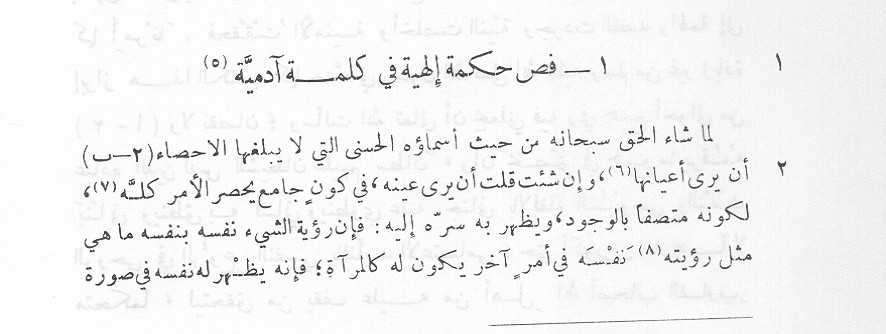 ١ ١ — فص حكمة إلهية في كلمة آدميَّة (٥)
لما شاء الحق سبحانه من حيث أسماؤه الحسنى التي لا يبلغها الاحصاء (٢-ب)
٢ أن يرى أعيانها(٦)، وإن شئت قلت أن يرى عينه، في كونٍ جامع يحصر الأمر كلَّه(٧)،
لكونه متصفاً بالوجود، ويظهر به سرّه إليه: فإن رؤية الشيء نفسه بنفسه ما هي
مثل رؤيته(٨) نَفْسَه في أمرٍ آخر يكون له كالمرآة؛ فإنه يظْهر له نفسه في صورة